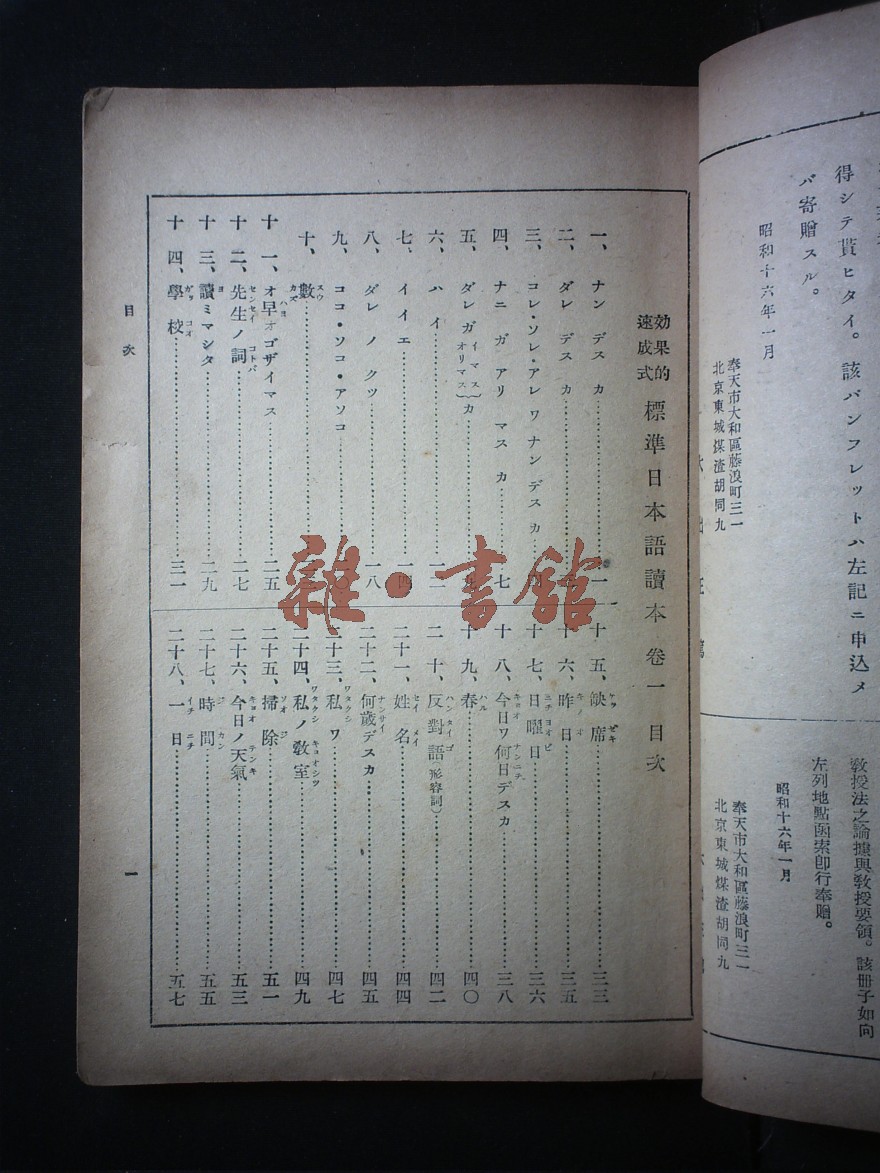 得シテ貰ヒタイ。該パンフレットハ左記ニ申込メ
バ寄贈スル。
昭和十六年一月
奉天市大和區藤浪町三一
北京東城煤渣胡同九
教授法之論據與教授要領。該册子如向
左列地點函索卽行奉贈。
昭和十六年一月
奉天市大和區藤浪町三一
北京東城煤渣胡同九
効果的
速成式
標準日本語讀本 卷一 目次
一、ナン デス カ……一
二、ダレ デス カ……
三、コレ・ソレ・アレ ワ ナン デス カ……
四、ナニ ガ アリ マス カ……七
五、ダレガ(イマス オリマス)カ……九
六、ハイ……一二
七、イイエ……一四
八、ダレ ノ クツ……一八
九、ココ・ソコ・アソコ……
十、數……
スウ
カズ
十一、オ早オゴザイマス……二五
ハヨ
十二、先生ノ詞……二七
センセイ コトバ
十三、讀ミマシタ……二九
ヨ
十四、學校……三一
ガッ コオ
十五、缺席……三三
ケッ セキ
十六、昨日……三五
キノオ
十七、日曜日……三六
ニチヨオビ
十八、今日ワ何日デスカ……三八
キョオ ナンニチ
十九、春……四〇
ハル
二十、反對語(形容詞)……四二
ハンタイゴ
二十一、姓名……四四
セイ メイ
二十二、何歲デスカ……四五
ナンサイ
二十三、私ワ……四七
ワタクシ
二十四、私ノ敎室……四九
ワタクシ キョオシツ
二十五、掃除……五一
ソオ ジ
二十六、今日ノ天氣……五三
キョオ テンキ
二十七、時間……五五
ジ カン
二十八、一日……五七
イチ ニチ
目次
一
雜·書館